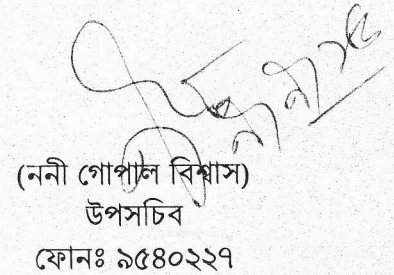 (ননী গোপাল বিশ্বাস)
উপসচিব
ফোনঃ ৯৫৪০২২৭